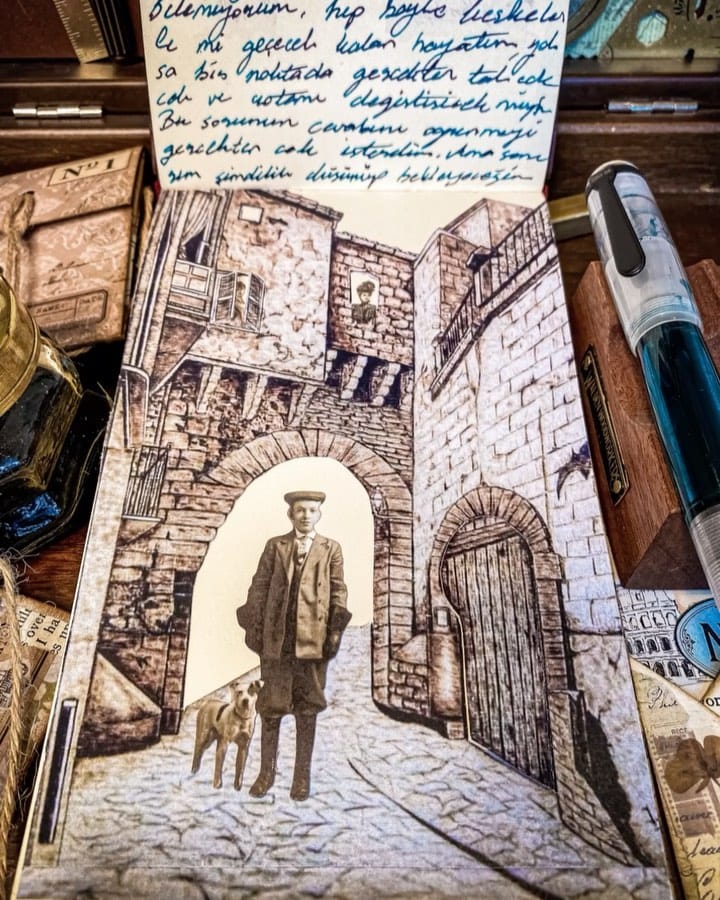 Bilemiyorum, hep böyle keşkeler
le mi geçecek kalan hayatım, yok
sa bir noktada gerçekten tak ede
cek ve rotamı değiştirecek miyim
Bu sorunun cevabını öğrenmeyi
gerçekten çok isterdim. Ama sanı
rım şimdilik düşünüp bekleyeceğim
No 1
over
I ha